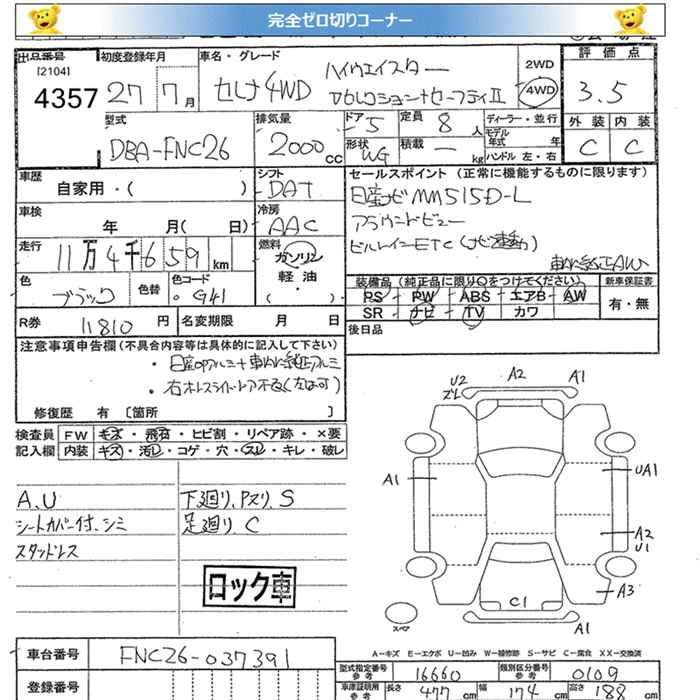 完全ゼロ切りコーナー
出品番号 初度登録年月 車名・グレード 2WD 評価点
[2104] 4357 27年 7月 セレナ4WD ハイウェイスター 4WD 3.5
型式 排気量 ドア 5 定員 8人 ディーラー・並行 外装 内装
モデル年式 年
DBA-FNC26 2000cc 形状 WG 積載 ― kg ハンドル 左・右 C C
車歴 シフト セールスポイント (正常に機能するものに限ります)
自家用・( ) DAT 日産ナビMM515D-L
車検 冷房 アラウンドビュー
年 月( 日) AAC ビルトインETC(ナビ連動)
走行 燃料
11万4千659km ガソリン 軽・油 ( )
色 ブラック 色替 色コード G41
装備品 (純正品に限り〇をつけてください) 新車保証書
PS PW ABS エアB AW 有・無
SR ナビ TV カワ
R券 11810円 名変期限 月 日 後日品
注意事項申告欄(不具合内容等は具体的に記入して下さい)
・日産OPアルミ+車内に純正アルミ
修復歴 有 〔箇所 〕
検査員 FW キズ・飛石・ヒビ割・リペア跡・×要
記入欄 内装 キズ・汚れ・コゲ・穴・スレ・キレ・破レ
U2 A2 A1
A1 UA1
A2
U1
A3
C1
A1
スペア
A、U 下廻り、Pスリ、S
シートカバー付、シミ 足廻り C
スタッドレス
ロック車
A-キズ E-エクボ U-凹み W-補修跡 S-サビ C-腐食 XX-交換済
車台番号 FNC26-037391
型式指定番号 参考 16660 類別区分番号 参考 0109
登録番号 車庫証明用 参考 長さ 477cm 幅 174cm 高さ 188cm